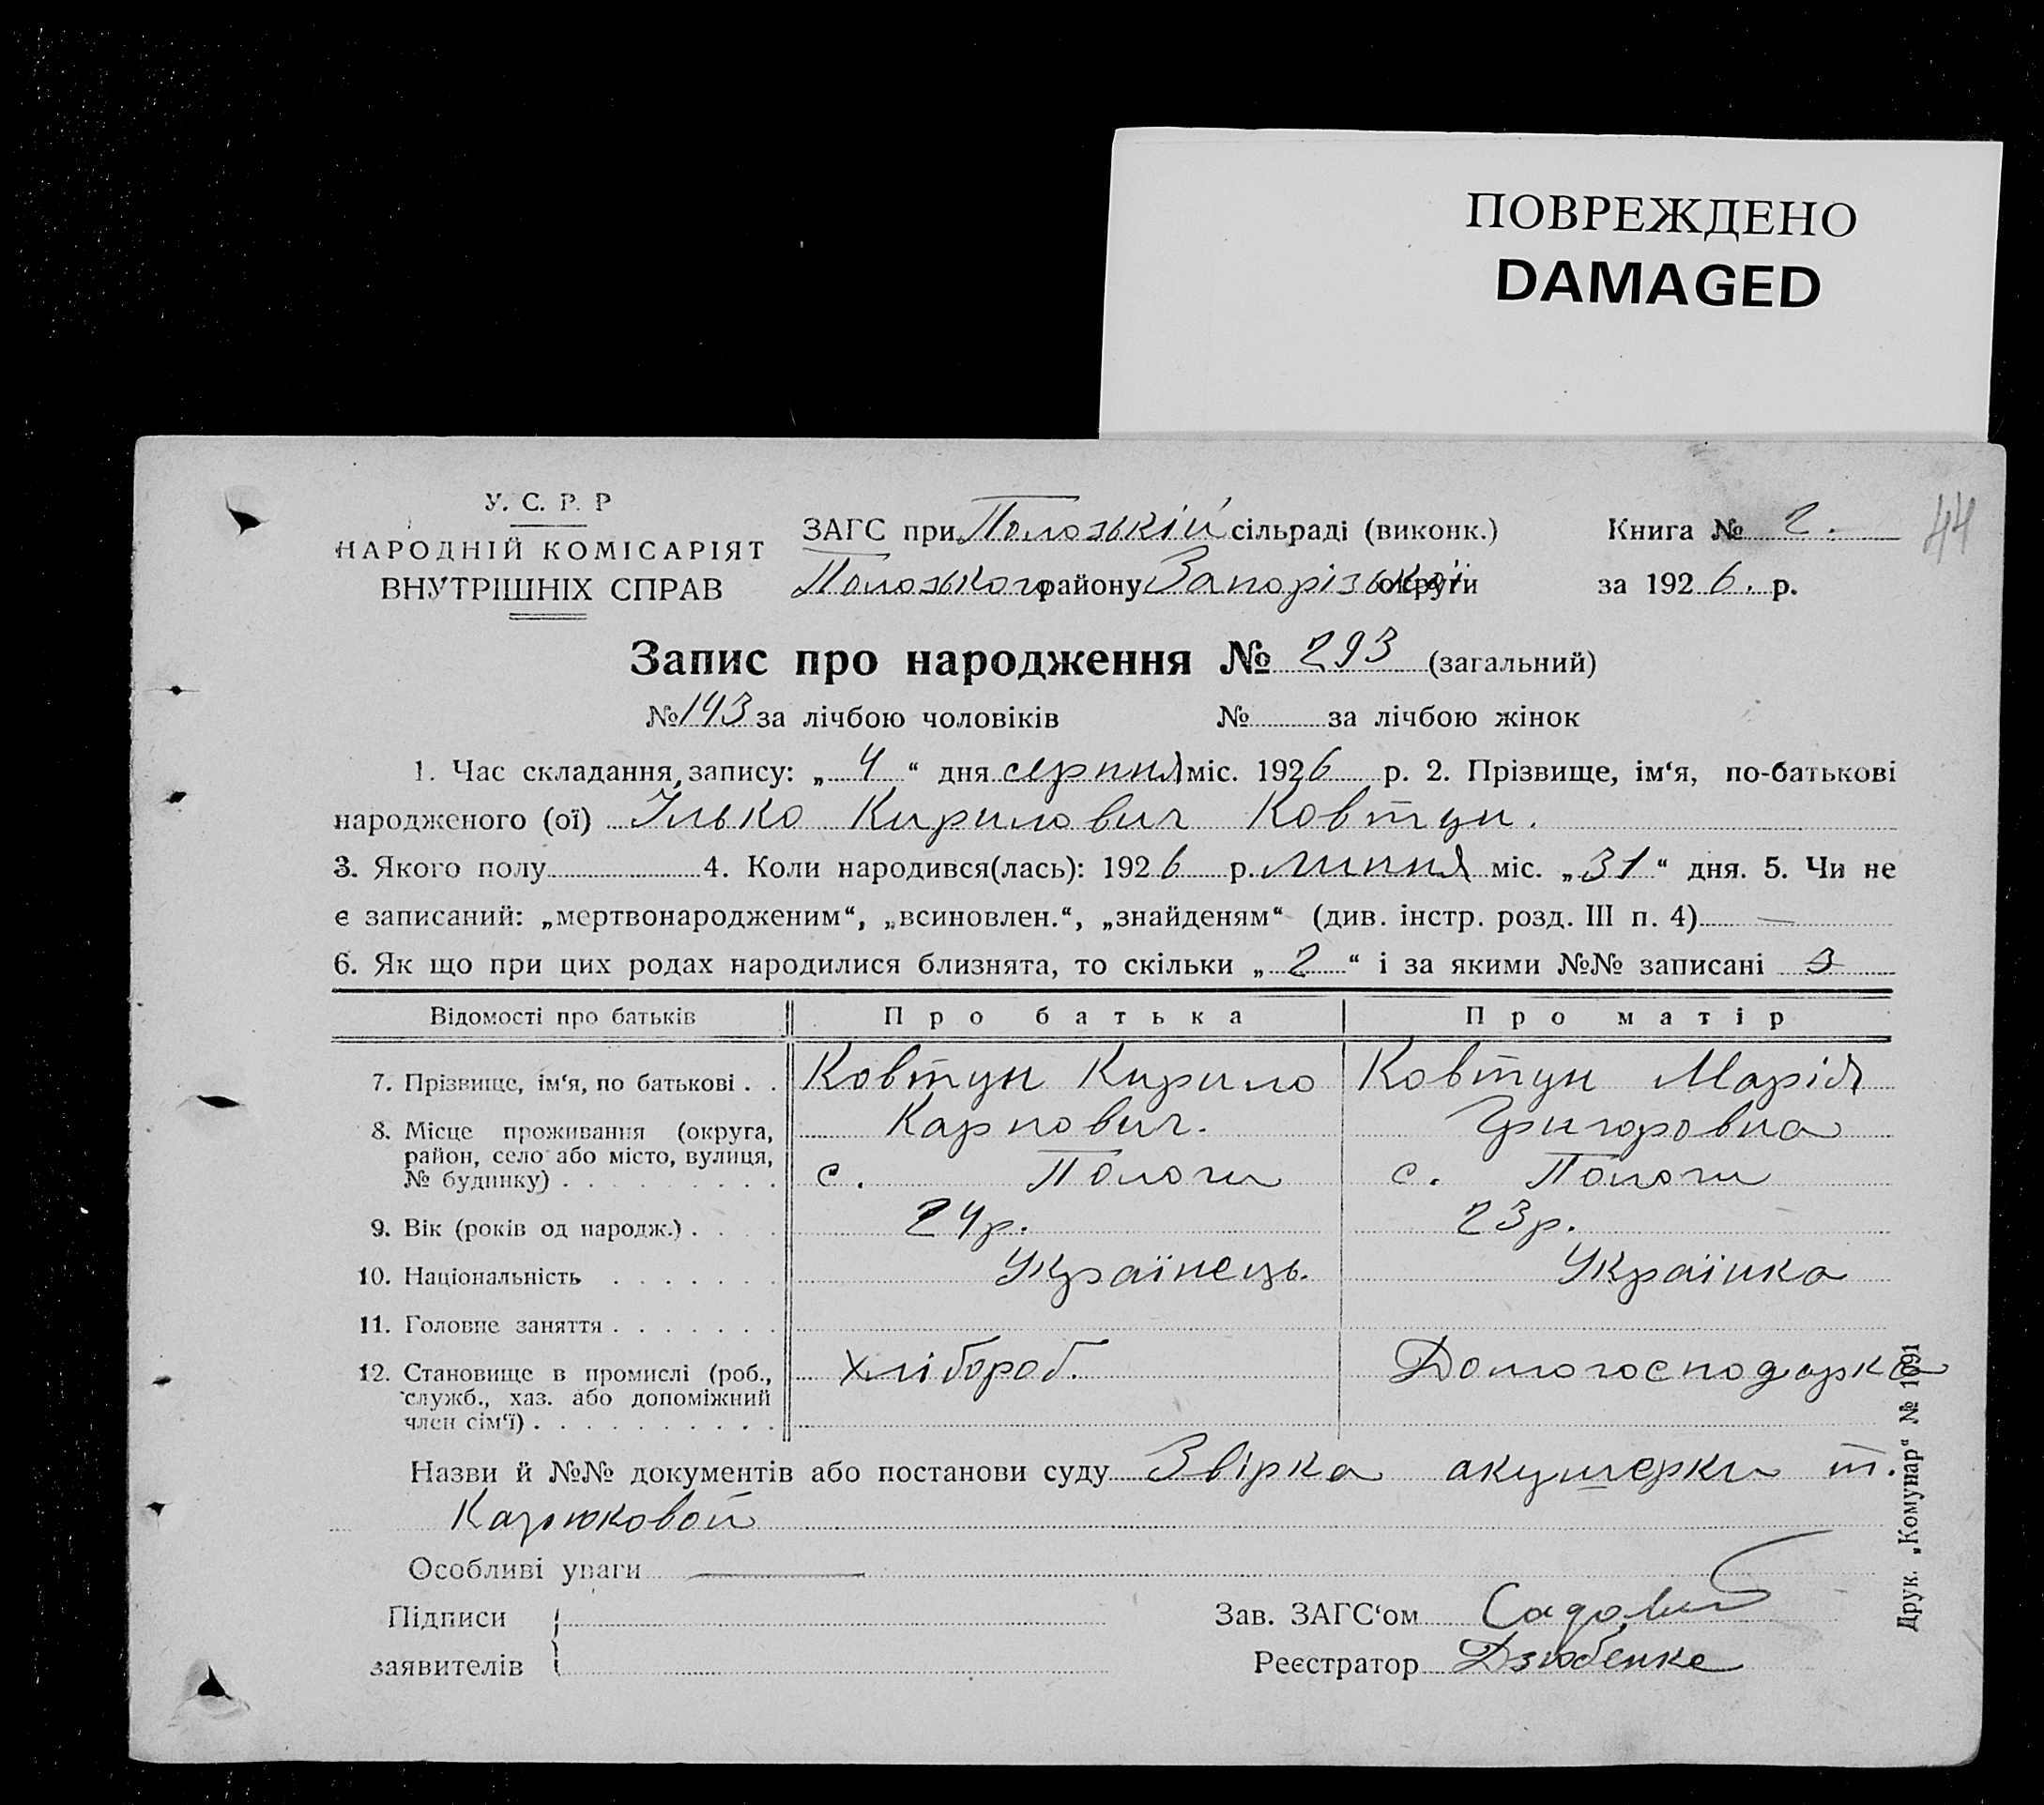 ПОВРЕЖДЕНО
DAMAGED
У. С. Р. Р
НАРОДНІЙ КОМІСАРІЯТ
ВНУТРІШНІХ СПРАВ
ЗАГС при Полозькій сільраді (виконк.)
Полозького району Запорізької округи
Книга № 2.
за 1926. р.
44
Запис про народження № 293 (загальний)
№ 143 за лічбою чоловіків № за лічбою жінок
1. Час складання запису: „ 4 “ дня серпня міс. 1926 р. 2. Прізвище, ім‘я, по-батькові
народженого (ої) Ілько Кирилович Ковтун.
3. Якого полу 4. Коли народився(лась): 1926 р. липня міс. „31“ дня. 5. Чи не
є записаний: „мертвонародженим“, „всиновлен.“, „знайденям“ (див. інстр. розд. III п. 4) —
6. Як що при цих родах народилися близнята, то скільки „ 2 “ і за якими №№ записані 3
Відомості про батьків Про батька Про матір
7. Прізвище, ім‘я, по батькові . . Ковтун Кирило Ковтун Марія
Карпович. Григоровна
8. Місце проживання (округа,
район, село або місто, вулиця,
№ будинку) . . . . . . . . . с. Пологи с. Пологи
9. Вік (років од народж.) . . . . 24р. 23р.
10. Національність . . . . . . . Українець. Українка
11. Головне заняття . . . . . . .
12. Становище в промислі (роб.,
служб., хаз. або допоміжний
член сім‘ї) . . . . . . . . . .
хлібороб. Домогосподарка
Назви й №№ документів або постанови суду Звірка акушерки т.
Карюковой
Особливі уваги
Підписи
заявителів
Зав. ЗАГС‘ом
Реєстратор Дзюбенко
Друк. „Комунар“ № 1091